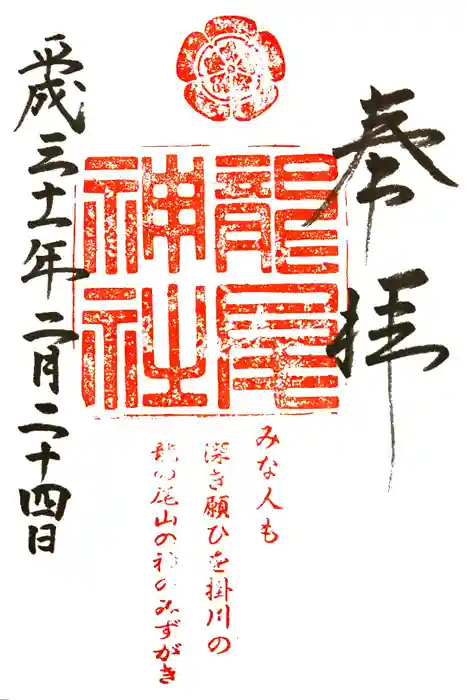 奉拝
龍尾神社
みな人も
深き願ひを掛川の
龍の尾山の神のみずがき
平成三十一年二月二十四日